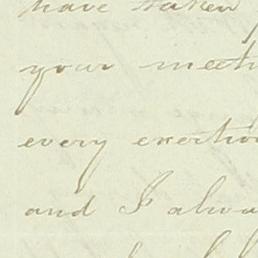 have taken
your meeti
every exertio
and I alwa